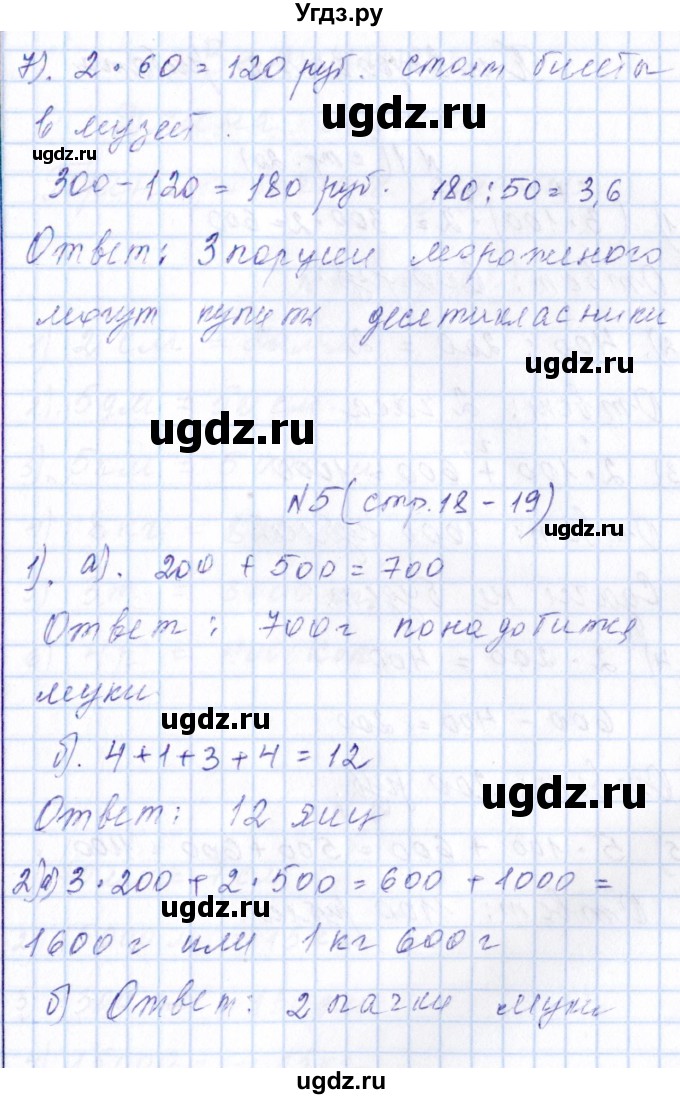 Угдз.ру
7). 2 · 60 = 120 руб. стоят билеты
ugdz.ru
в музей.
ugdz.ru
300 - 120 = 180 руб. 180 : 50 = 3,6
Ответ: 3 порции мороженого
могут купить десятикласники
ugdz.ru
ugdz.ru
N5 (стр. 18 - 19)
ugdz.ru
1). а). 200 + 500 = 700
Ответ: 700 г понадобится
муки
ugdz.ru
б). 4 + 1 + 3 + 4 = 12
ugdz.ru
Ответ: 12 яиц
2) а) 3 · 200 + 2 · 500 = 600 + 1000 =
ugdz.ru
1600 г или 1 кг 600 г
б) Ответ: 2 пачки муки
ugdz.ru